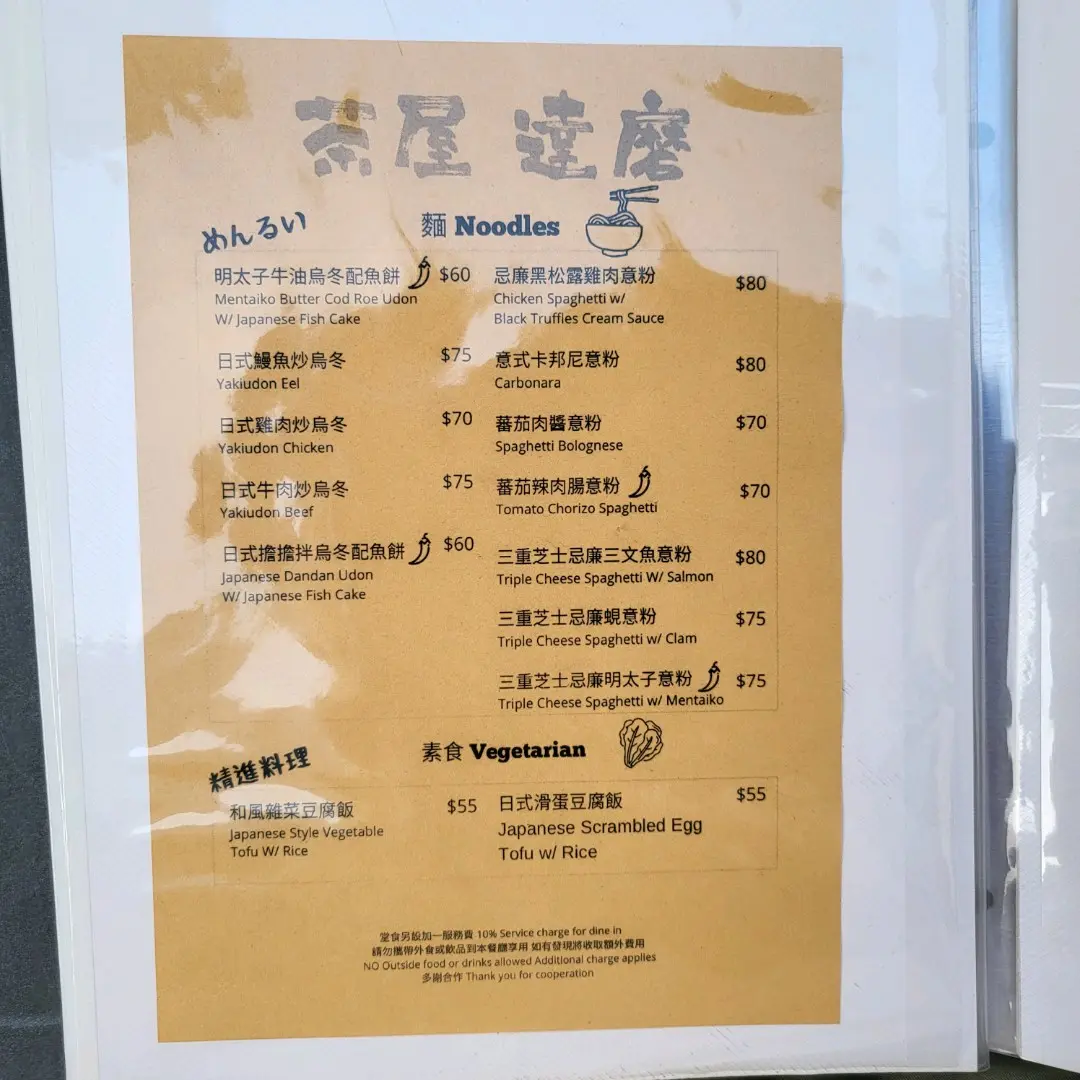 茶屋 達磨
めんるい
麵 Noodles
明太子牛油烏冬配魚餅 $60
Mentaiko Butter Cod Roe Udon
W/ Japanese Fish Cake
日式鰻魚炒烏冬 $75
Yakiudon Eel
日式雞肉炒烏冬 $70
Yakiudon Chicken
日式牛肉炒烏冬 $75
Yakiudon Beef
日式擔擔拌烏冬配魚餅 $60
Japanese Dandan Udon
W/ Japanese Fish Cake
忌廉黑松露雞肉意粉 $80
Chicken Spaghetti w/
Black Truffies Cream Sauce
意式卡邦尼意粉 $80
Carbonara
蕃茄肉醬意粉 $70
Spaghetti Bolognese
蕃茄辣肉腸意粉 $70
Tomato Chorizo Spaghetti
三重芝士忌廉三文魚意粉 $80
Triple Cheese Spaghetti W/ Salmon
三重芝士忌廉蜆意粉 $75
Triple Cheese Spaghetti w/ Clam
三重芝士忌廉明太子意粉 $75
Triple Cheese Spaghetti w/ Mentaiko
精進料理
素食 Vegetarian
和風雜菜豆腐飯 $55
Japanese Style Vegetable
Tofu W/ Rice
日式滑蛋豆腐飯 $55
Japanese Scrambled Egg
Tofu w/ Rice
堂食另設加一服務費 10% Service charge for dine in
請勿攜帶外食或飲品到本餐廳享用 如有發現將收取額外費用
NO Outside food or drinks allowed Additional charge applies
多謝合作 Thank you for cooperation